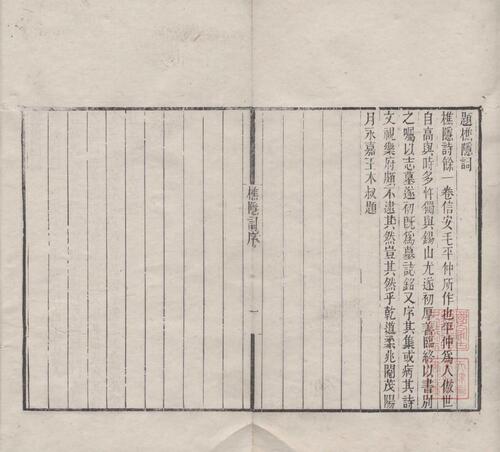 題樵隱詞
樵隱詩餘一卷信安毛平仲所作也平仲爲人傲世
自高與時多忤獨與錫山尤遂初厚善臨終以書別
之囑以志墓遂初既爲墓誌銘又序其集或病其詩
文視樂府頗不逮其然豈其然乎乾道柔兆閹茂陽
月永嘉王木叔題
樵隱詞序
一